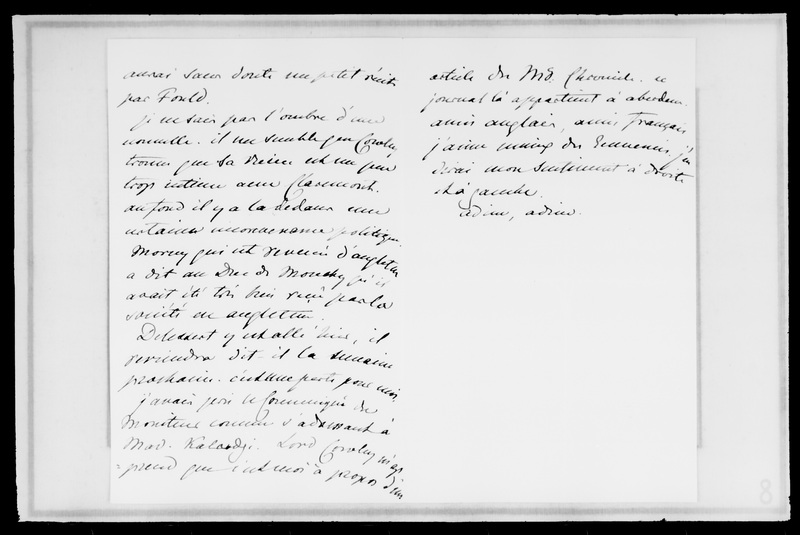 aurai sans doute un petit récit
par Fould.
je ne sais pas l'ombre d'une
nouvelle. il me semble que Cowley
trouve que sa Reine est un peu
trop intime avec Claremont.
au fond il y a là dedans une
certaine inconvenance politique.
Morny qui est revenu d'angleterre
a dit au Duc de Mouchy qu'il
avait été très bien reçu par la
société en angleterre.
Delessert y est allé hier, il
reviendra dit-il la semaine
prochaine. c'est une perte pour moi.
j'avais pris le Communiqué du
Moniteur comme s'adressant à
Mad. Kalergi. Lord Cowley m'ap
=prend que c'est moi à propos d'un
article du M. Chronicle. ce
journal là appartient à aberdeen.
amis anglais, amis français,
j'aime mieux des Ennemis. j'en
dirai mon sentiment à droite
et à gauche.
adieu, adieu.
8